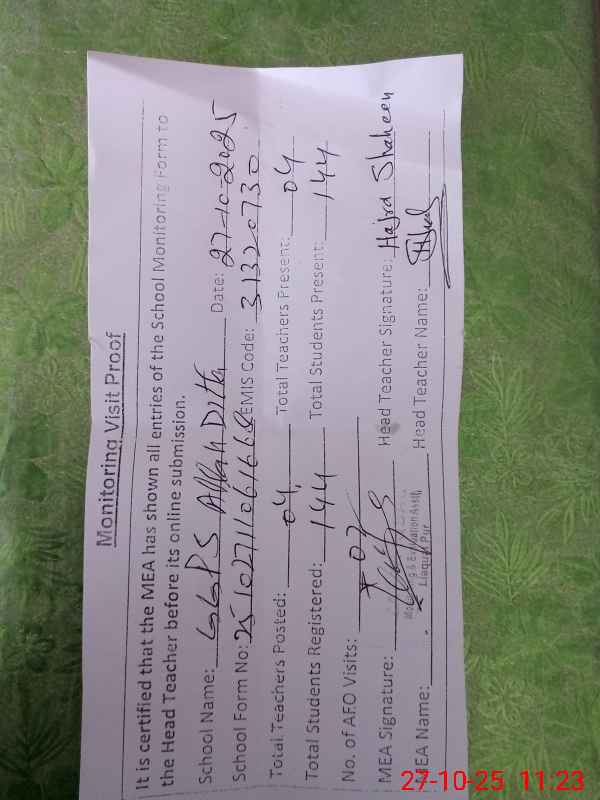 Monitoring Visit Proof
It is certified that the MEA has shown all entries of the School Monitoring Form to
the Head Teacher before its online submission.
School Name: GGPS Allah Ditta Date: 27-10-2025
School Form No: EMIS Code: 31320730
Total Teachers Posted: 04 Total Teachers Present: 04
Total Students Registered: 144 Total Students Present: 144
No. of AEO Visits: 07
MEA Signature: Head Teacher Signature: Hajra Shaheen
MEA Name: Head Teacher Name:
& Evaluation Assit
Liaquat Pur
27-10-25 11:23